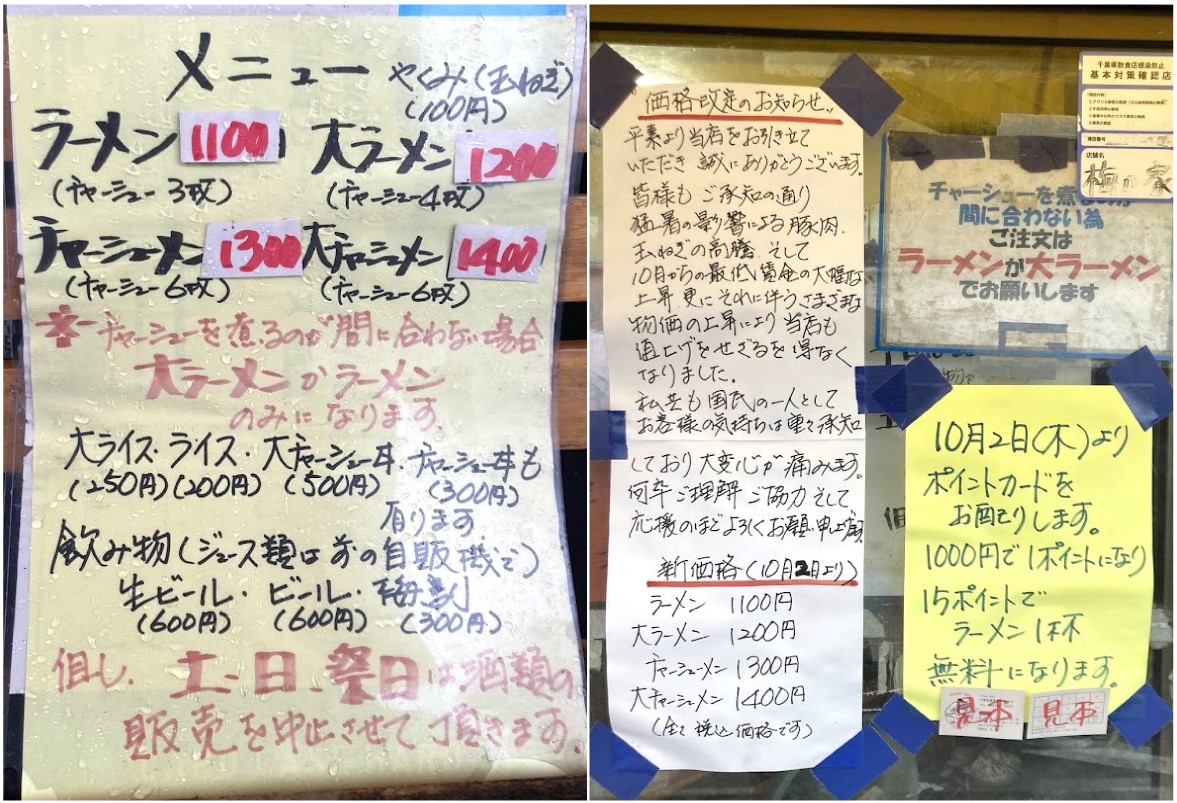 メニュー やくみ(玉ねぎ)
(100円)
ラーメン 1100 大ラーメン 1200
(チャーシュー3枚) (チャーシュー4枚)
チャーシューメン 1300 大チャーシューメン 1400
(チャーシュー6枚) (チャーシュー6枚)
チャーシューを煮るのが間に合わない場合
大ラーメンかラーメン
のみになります。
大ライス・ライス・大チャーシュー丼・チャーシュー丼も
(250円)(200円) (500円) (300円)
有ります
飲み物(ジュース類は前の自販機で)
生ビール・ビール・梅割
(600円) (600円) (300円)
但し、土・日・祭日は酒類の
販売を中止させて頂きます。
価格改定のお知らせ。
平素より当店をお引き立て
いただき 誠にありがとうございます。
皆様も ご承知の通り
猛暑の影響による豚肉、
玉ねぎの高騰 そして
10月からの最低賃金の大幅な
上昇 更にそれに伴うさまざまな
物価の上昇により 当店も
値上げをせざるを得なく
なりました。
私共も国民の一人として
お客様の気持ちは重々承知
しており 大変心が痛みます。
何卒ご理解 ご協力 そして
応援のほどよろしくお願い申し上げます。
新価格(10月2日より)
ラーメン 1100円
大ラーメン 1200円
チャーシューメン 1300円
大チャーシューメン 1400円
(全て税込価格です)
千葉県飲食店感染防止
基本対策確認店
確認番号
店舗名
梅乃家
チャーシューを煮
間に合わない為
ご注文は
ラーメンか大ラーメン
でお願いします
10月2日(木)より
ポイントカードを
お配りします。
1000円で1ポイントになり
15ポイントで
ラーメン1杯
無料になります。
見本 見本